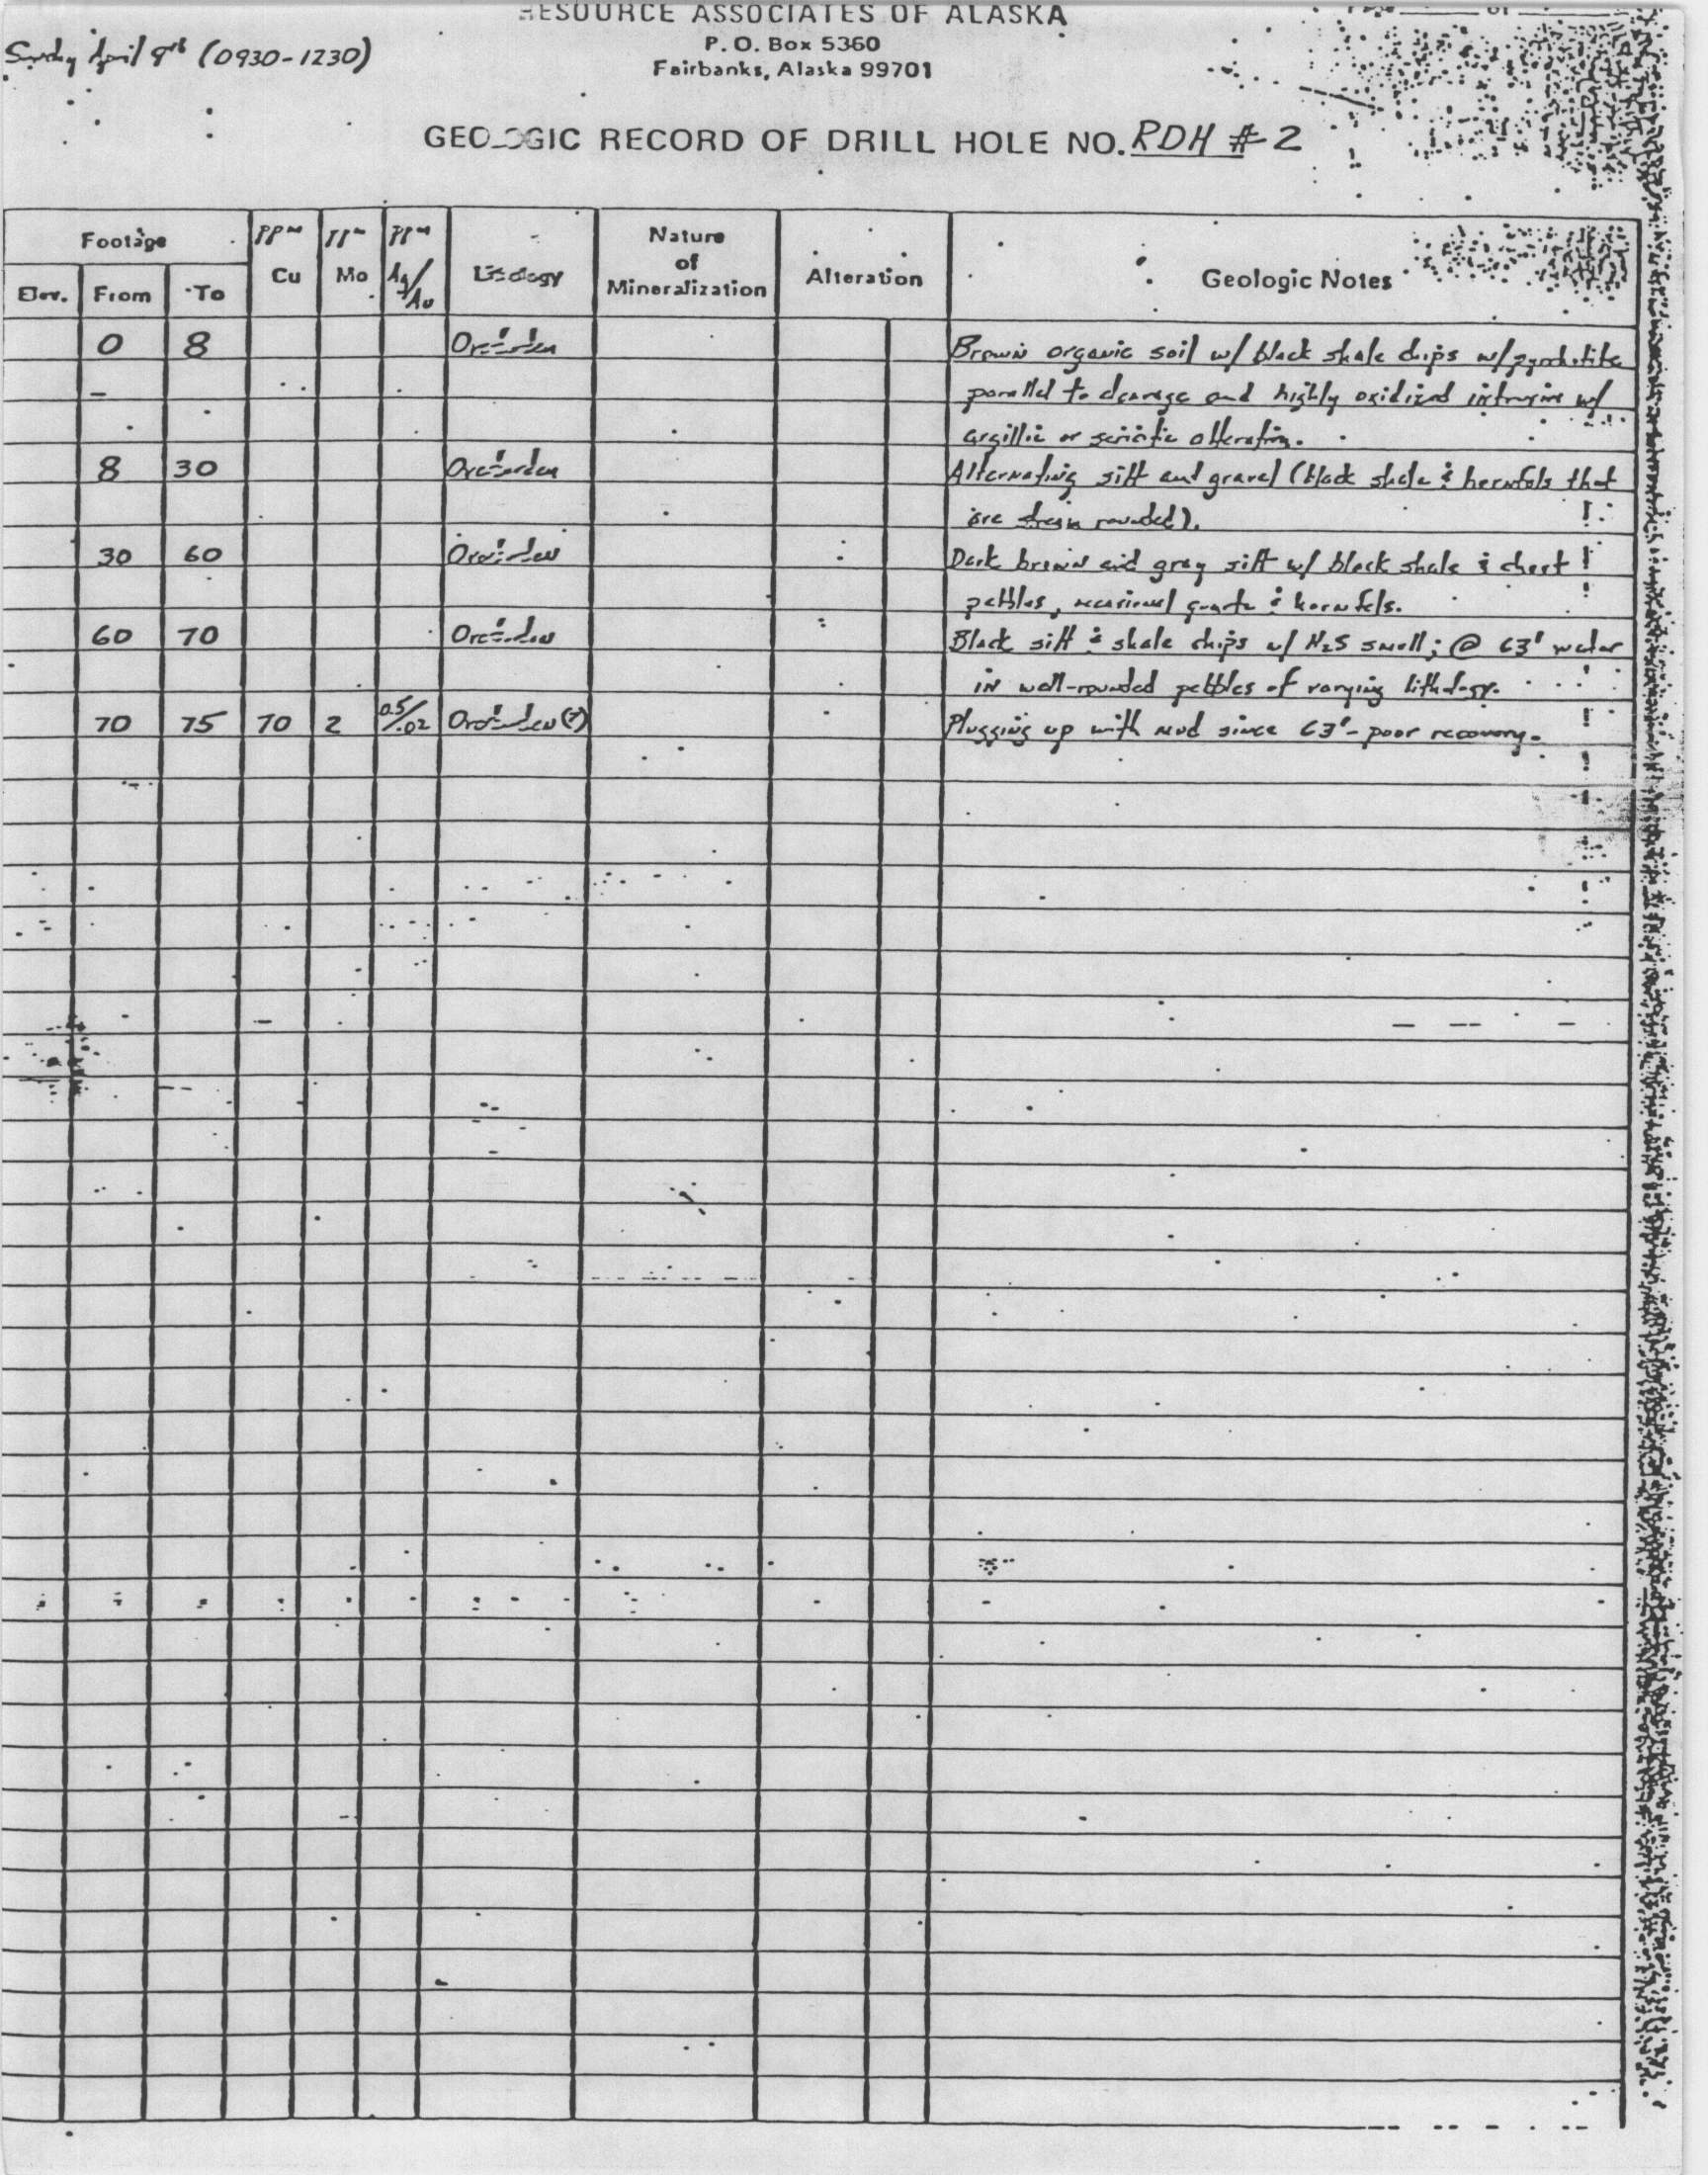 RESOURCE ASSOCIATES OF ALASKA
P. O. Box 5360
Fairbanks, Alaska 99701
Sunday April 8th (0930-1230)
GEOLOGIC RECORD OF DRILL HOLE NO. RDH # 2
Footage ppm ppm ppm Nature of Mineralization
Elev. From To Cu Mo Ag/Au Lithology Alteration Geologic Notes
0 8 Overburden Brown organic soil w/ black shale chips w/ pyrrhotite
parallel to cleavage and highly oxidized intrusive w/
argillic or sericitic alteration.
8 30 Overburden Alternating silt and gravel (black shale & hornfels that
are stream rounded).
30 60 Overburden Dark brown and gray silt w/ black shale & chert
pebbles, occasional quartz & hornfels.
60 70 Overburden Black silt & shale chips w/ H2S smell; @ 63' water
in well-rounded pebbles of varying lithology.
70 75 70 2 0.5/.02 Overburden (?) Plugging up with mud since 63' - poor recovery.